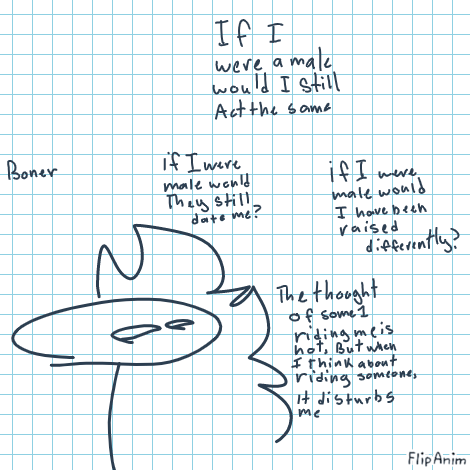 If I
were a male
would I still
Act the same
Boner
if I were
male would
They still
date me?
if I were
male would
I have been
raised
differently?
The thought
of some1
riding me is
hot, But when
I think about
riding someone,
It disturbs
me
FlipAnim